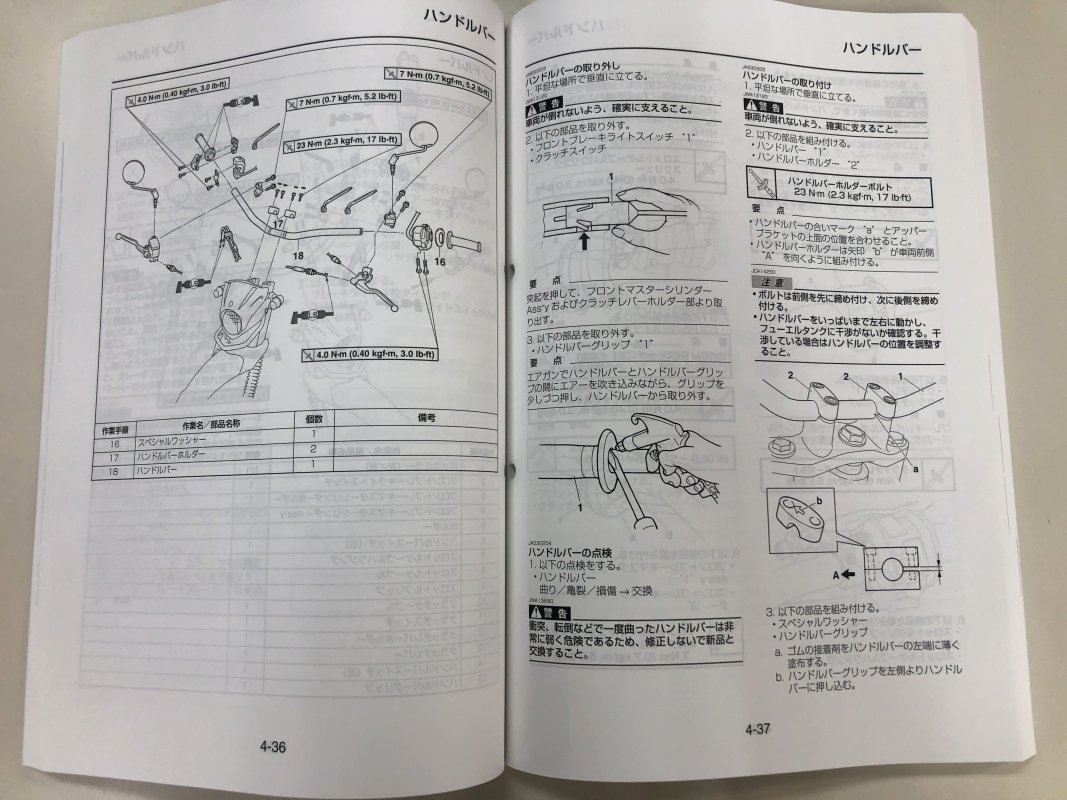 ハンドルバー
4.0 N·m (0.40 kgf·m, 3.0 lb·ft)
7 N·m (0.7 kgf·m, 5.2 lb·ft)
7 N·m (0.7 kgf·m, 5.2 lb·ft)
23 N·m (2.3 kgf·m, 17 lb·ft)
LS
17
18
16
LS
LS
LS
4.0 N·m (0.40 kgf·m, 3.0 lb·ft)
作業手順 作業名／部品名称 個数 備考
16 スペシャルワッシャー 1
17 ハンドルバーホルダー 2
18 ハンドルバー 1
4-36
ハンドルバー
ハンドルバーの取り外し
1. 平坦な場所で垂直に立てる。
JWA13120
警告
車両が倒れないよう、確実に支えること。
2. 以下の部品を取り外す。
・フロントブレーキライトスイッチ "1"
・クラッチスイッチ
1
要 点
突起を押して、フロントマスターシリンダー
Ass'y およびクラッチレバーホルダー部より取
り出す。
3. 以下の部品を取り外す。
・ハンドルバーグリップ "1"
要 点
エアガンでハンドルバーとハンドルバーグリッ
プの間にエアーを吹き込みながら、グリップを
少しづつ押し、ハンドルバーから取り外す。
1
JAS30204
ハンドルバーの点検
1. 以下の点検をする。
・ハンドルバー
曲り／亀裂／損傷 → 交換
JWA13690
警告
衝突、転倒などで一度曲ったハンドルバーは非
常に弱く危険であるため、修正しないで新品と
交換すること。
JAS30205
ハンドルバーの取り付け
1. 平坦な場所で垂直に立てる。
JWA13120
警告
車両が倒れないよう、確実に支えること。
2. 以下の部品を組み付ける。
・ハンドルバー "1"
・ハンドルバーホルダー "2"
ハンドルバーホルダーボルト
23 N·m (2.3 kgf·m, 17 lb·ft)
要 点
・ハンドルバーの合いマーク "a" とアッパー
ブラケットの上面の位置を合わせること。
・ハンドルバーホルダーは矢印 "b" が車両前側
"A" を向くように組み付ける。
JCA14250
注意
• ボルトは前側を先に締め付け、次に後側を締め
付ける。
• ハンドルバーをいっぱいまで左右に動かし、
フューエルタンクに干渉がないか確認する。干
渉している場合はハンドルバーの位置を調整す
ること。
2 2 1
a
b
A
3. 以下の部品を組み付ける。
・スペシャルワッシャー
・ハンドルバーグリップ
a. ゴムの接着剤をハンドルバーの左端に薄く
塗布する。
b. ハンドルバーグリップを左側よりハンドル
バーに押し込む。
4-37